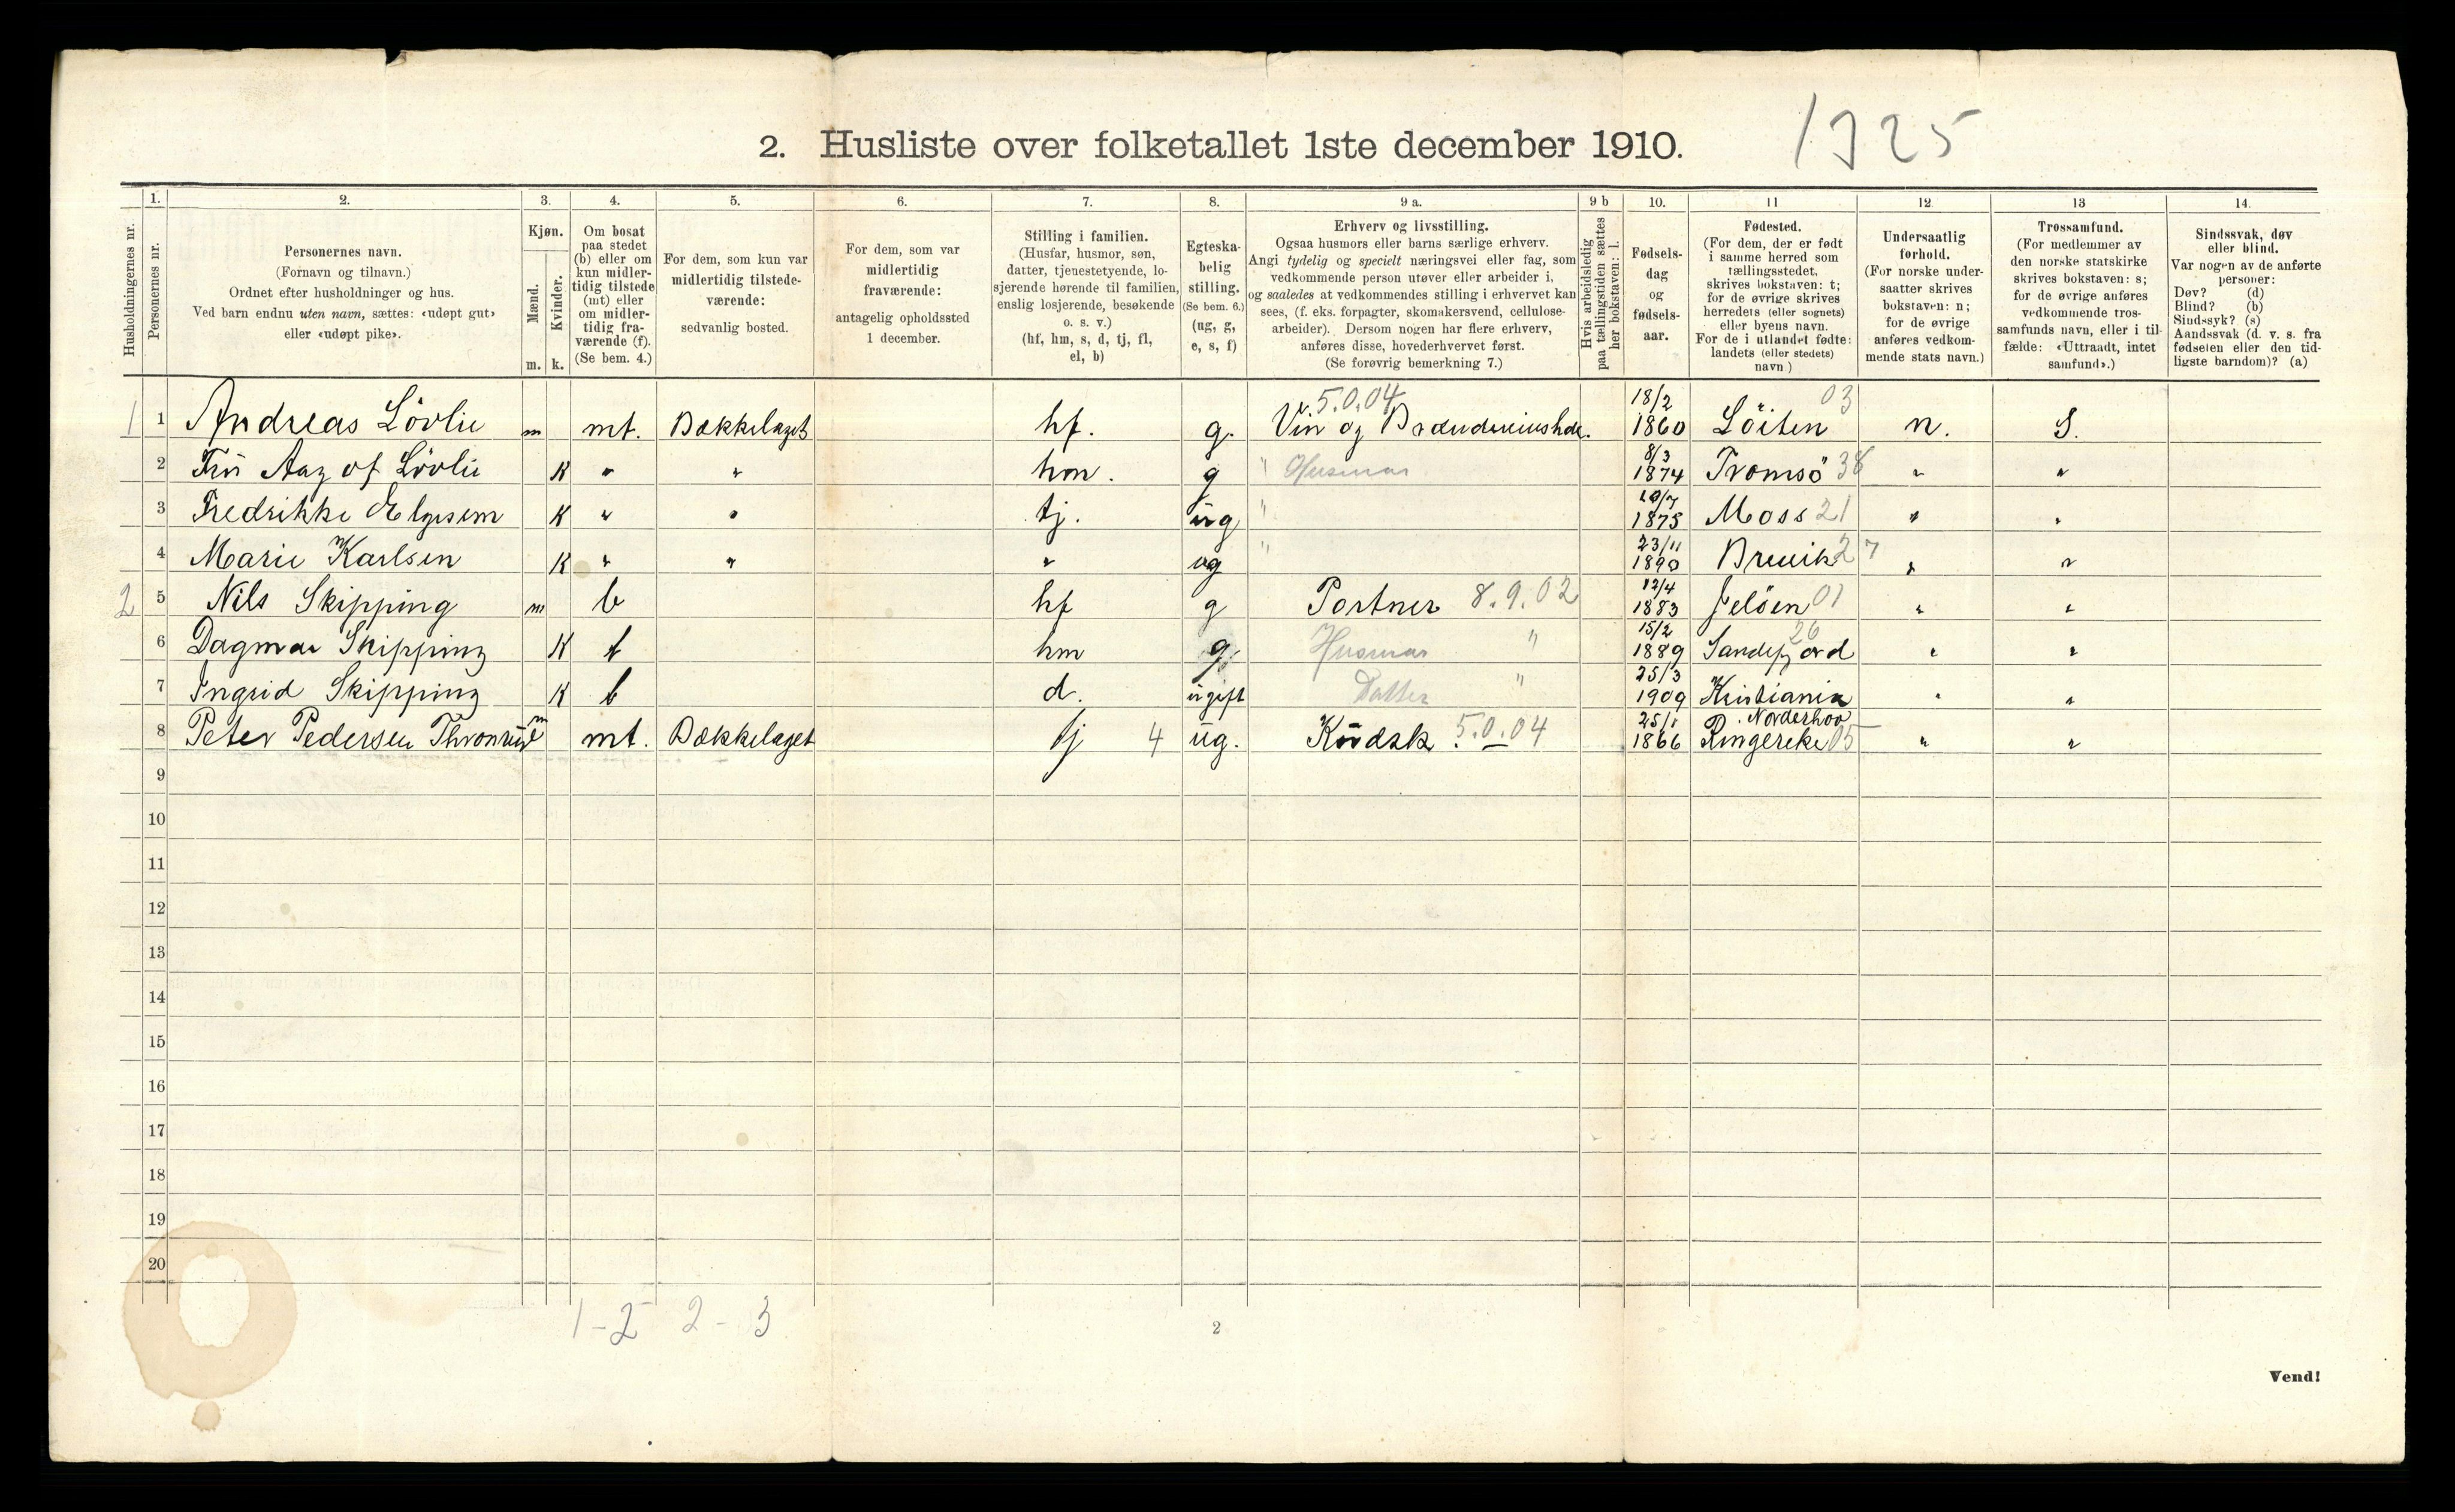 2. Husliste over folketallet 1ste december 1910. 1325
1. 2. 3. 4. 5. 6. 7. 8. 9 a. 9 b 10. 11 12. 13 14.
Husholdningernes nr.
Personernes nr.
Personernes navn.
(Fornavn og tilnavn.)
Ordnet efter husholdninger og hus.
Ved barn endnu uten navn, sættes: «udøpt gut»
eller «udøpt pike».
Kjøn.
Mænd.
Kvinder.
m. k.
Om bosat
paa stedet
(b) eller om
kun midler-
tidig tilstede
(mt) eller
om midler-
tidig fra-
værende (f).
(Se bem. 4.)
For dem, som kun var
midlertidig tilstede-
værende:
sedvanlig bosted.
For dem, som var
midlertidig
fraværende:
antagelig opholdssted
1 december.
Stilling i familien.
(Husfar, husmor, søn,
datter, tjenestetyende, lo-
sjerende hørende til familien,
enslig losjerende, besøkende
o. s. v.)
(hf, hm, s, d, tj, fl,
el, b)
Egteska-
belig
stilling.
(Se bem. 6.)
(ug, g,
e, s, f)
Erhverv og livsstilling.
Ogsaa husmors eller barns særlige erhverv.
Angi tydelig og specielt næringsvei eller fag, som
vedkommende person utøver eller arbeider i,
og saaledes at vedkommendes stilling i erhvervet kan
sees, (f. eks. forpagter, skomakersvend, cellulose-
arbeider). Dersom nogen har flere erhverv,
anføres disse, hovederhvervet først.
(Se forøvrig bemerkning 7.)
Hvis arbeidsledig
paa tællingstiden sættes
her bokstaven: l.
Fødsels-
dag
og
fødsels-
aar.
Fødested.
(For dem, der er født
i samme herred som
tællingsstedet,
skrives bokstaven: t;
for de øvrige skrives
herredets (eller sognets)
eller byens navn.
For de i utlandet fødte:
landets (eller stedets)
navn)
Undersaatlig
forhold.
(For norske under-
saatter skrives
bokstaven: n;
for de øvrige
anføres vedkom-
mende stats navn.)
Trossamfund.
(For medlemmer av
den norske statskirke
skrives bokstaven: s;
for de øvrige anføres
vedkommende tros-
samfunds navn, eller i til-
fælde: «Uttraadt, intet
samfund».)
Sindssvak, døv
eller blind.
Var nogen av de anførte
personer:
Døv? (d)
Blind? (b)
Sindssyk? (s)
Aandssvak (d. v. s. fra
fødselen eller den tid-
ligste barndom)? (a)
1 1 Andreas Lövlie m mt. Bækkelaget hf. g. 5.0.04 Vin og 18/2 1860 Löiten 03 n. S.
2 Lövlie K " " hm. g " Husmor 8/3 1874 Tromsö 38 " "
3 Fredrikke K " " tj. ug " 1875 Moss 21 " "
4 Marie Karlsen K " " " ug " 23/11 1890 Brevik 27 " "
2 5 Nils Skipping m b hf g Portner 8.9.02 12/4 1883 Jelöen 01 " "
6 Dagmar Skipping K b hm g Husmor " 15/2 1889 Sandefjord 26 " "
7 Ingrid Skipping K b d. ugift Datter " 25/3 1909 Kristiania " "
8 Peter Pedersen m mt. Bækkelaget tj 4 ug. Kudsk 5.0.04 25/1 1866 Norderhov Ringerike 05 " "
9
10
11
12
13
14
15
16
17
18
19
20
1-2 2-3
2
Vend!